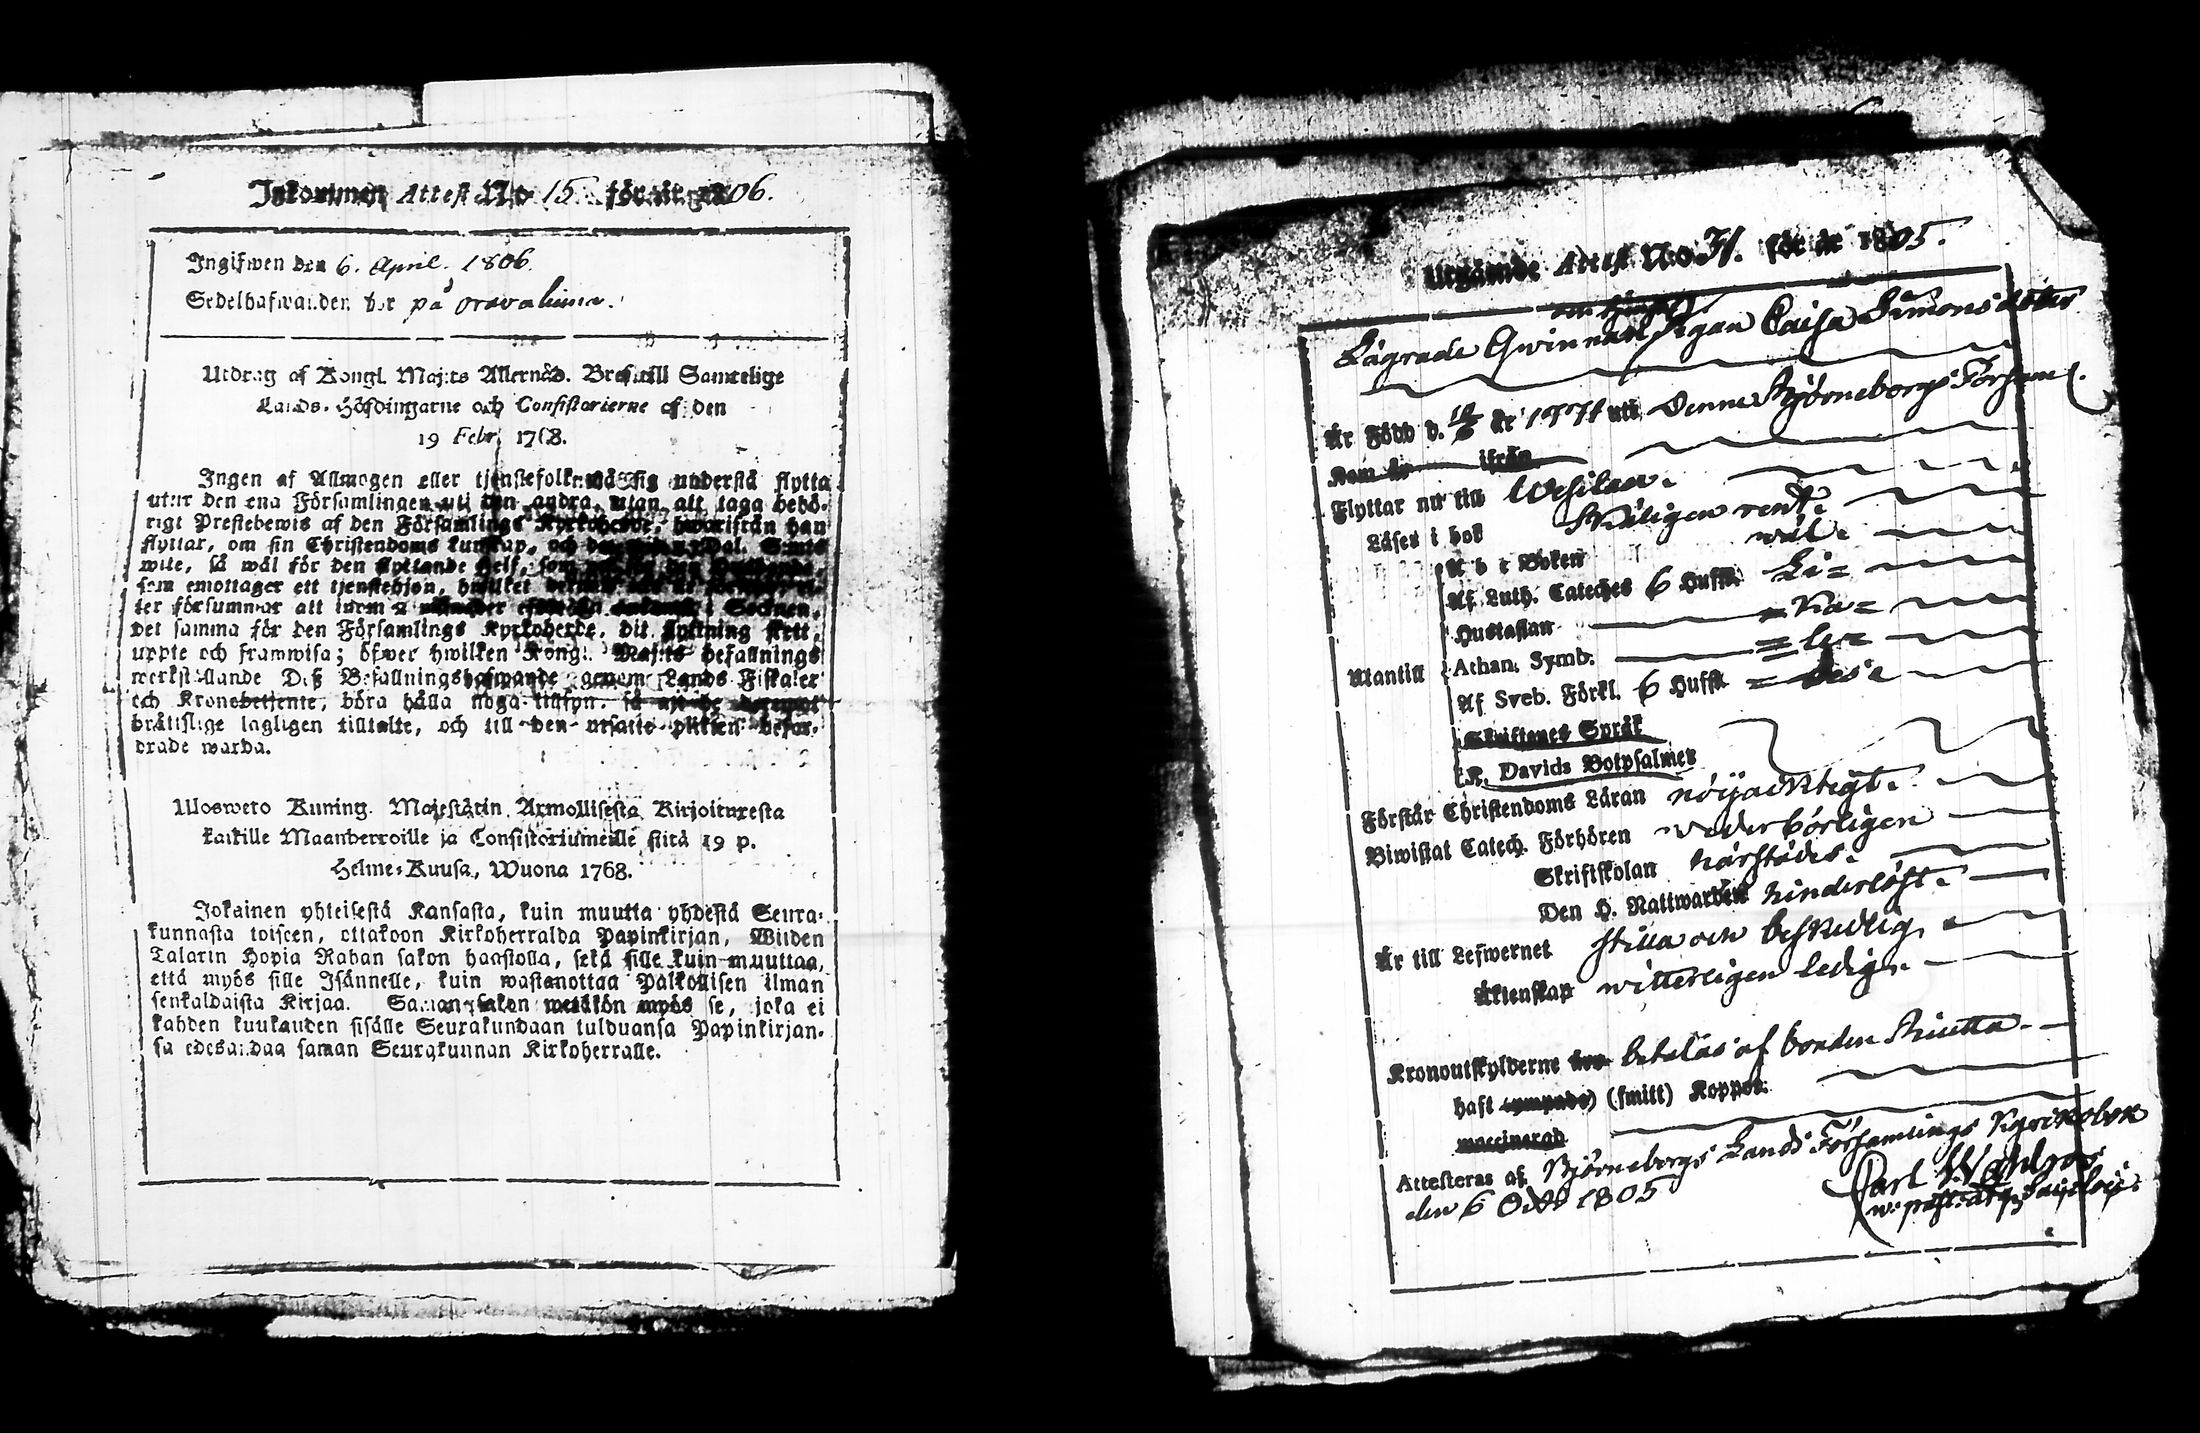 Inkommen Attest No 15 för år 1806.
Ingifwen den 6. April. 1806.
Sedelhafwanden bor på oravahima.
Utdrag af Kongl. Maj:ts Allernåd. Bref till Samtelige
Lands-Höfdingarne och Consistorierne af den
19 Febr. 1768.
Ingen af Allmogen eller tjenstefolk må sig understå flytta
utur den ena Församlingen uti den andra, utan att taga behö-
rigt Prestebewis af den Församlings Kyrkoherde, hwarifrån han
flyttar, om sin Christendoms kunskap, och Dal. S:mts
wite, så wäl för den flyttande sjelf, som
som emottager ett tjenstehjon, hwilket
ler försummar att inom 2 månader efter i Socknen,
det samma för den Församlings Kyrkoherde, dit flyttning skett,
uppte och framwisa; öfwer hwilken Kongl. Maj:ts befallnings
werkställande Deß Befallningshafwande genom Lands Fiskaler
och Kronobetjente, böra hålla noga tillsyn, så att de
bråttslige lagligen tilltalte, och till den utsatte plikten befor-
drade warda.
Ulosweto Kuning. Majestätin Armollisesta Kirjoituxesta
kaikille Maanherroille ja Consistoriumeille siitä 19 p.
Helme-Kuusa, Wuona 1768.
Jokainen yhteisestä Kansasta, kuin muutta yhdestä Seura-
kunnasta toiseen, ottakoon Kirkoherralda Papinkirjan, Wiiden
Talarin Hopia Rahan sakon haastolla, sekä sille kuin muuttaa,
että myös sille Isännelle, kuin wastanottaa Palkollisen ilman
senkaldaista Kirjaa. Saman sakon wetäkön myös se, joka ei
kahden kuukauden sisälle Seurakundaan tulduansa Papinkirjan-
sa edesandaa saman Seurakunnan Kirkoherralle.
Utgående Attest No 31. för år 1805.
Lägrade Qwinnan Caisa Simonsdoter
Är Född d. år 1771 uti Denne Björneborgs Församl.
Kom år ifrån
Flyttar nu till Wesilax.
Läser i bok skäligen rent.
A b c Boken wäl.
Af Luth. Cateches 6 Huffst. Li=
Hustaflan =ka=
Utantill Athan. Symb. =le=
Af Sveb. Förkl. 6 Huffst. =des.
Skriftenes Språk
K. Davids Botpsalmer
Förstår Christendoms Läran nöjacktigt.
Biwistat Catech. Förhören wederbörligen
Skriftskolan härstädes.
Den H. Nattwarden hinderlöst.
Är till Lefwernet stilla och beskedlig,
Äktenskap witterligen ledig.
Kronoutskylderne betalas af bonden
haft (ympade) (smitt) Koppor.
vaccinerad
Attesteras af Björneborgs Lands Församlings
den 6 Octb 1805
Carl Wahlroos